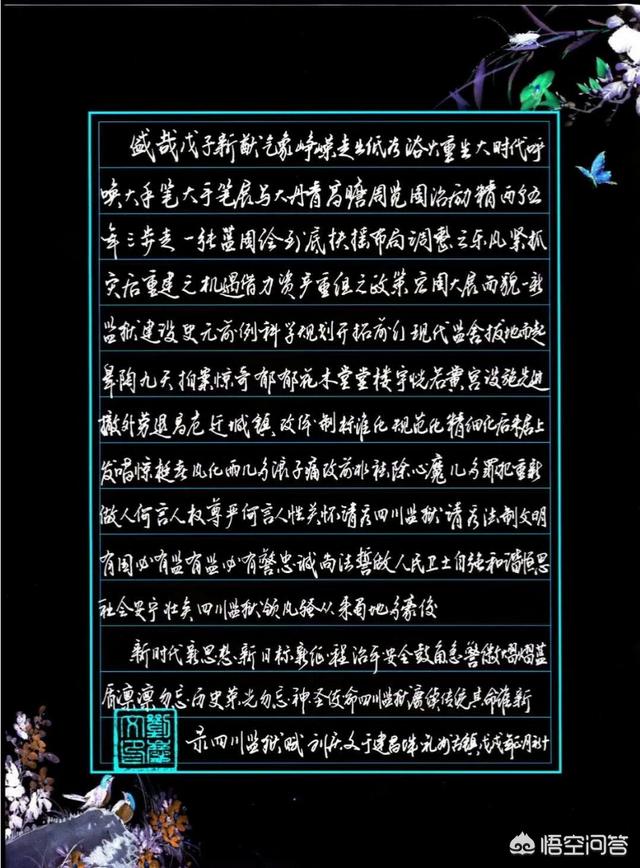 盛哉戊子新猷气象峥嵘走出低谷浴火重生大时代呼
唤大手笔大手笔展与大丹青高瞻周览图治励精两个五
年三步走一张蓝图绘到底扶摇布局调整三乐风紧抓
灾后重建之机遇借力资产重组之政策宏图大展面貌一新
监狱建设史无前例科学规划开拓前行现代监舍拔地而起
皋陶九天拍案惊奇郁郁花木堂堂楼宇恍若黄宫设施先进
撤外劳退易危迁城镇改体制标准化规范化精细化后来居上
发唱惊挺春风化雨几多浪子痛改前非祛除心魔几多罪犯重新
做人何言人权尊严何言人性关怀请看四川监狱请看法制文明
有国必有监有监必有警忠诚向法誓做人民卫士自强和谐恒思
社会安宁壮矣四川监狱领风骚从来蜀地多豪俊
新时代新思想新目标新征程治平安全鼓角急警徽熠熠蓝
盾凛凛勿忘历史荣光勿忘神圣使命四川监狱赓续传统其命维新
录四川监狱赋刘庆文于建昌城礼州古镇戊戌年
悟空问答